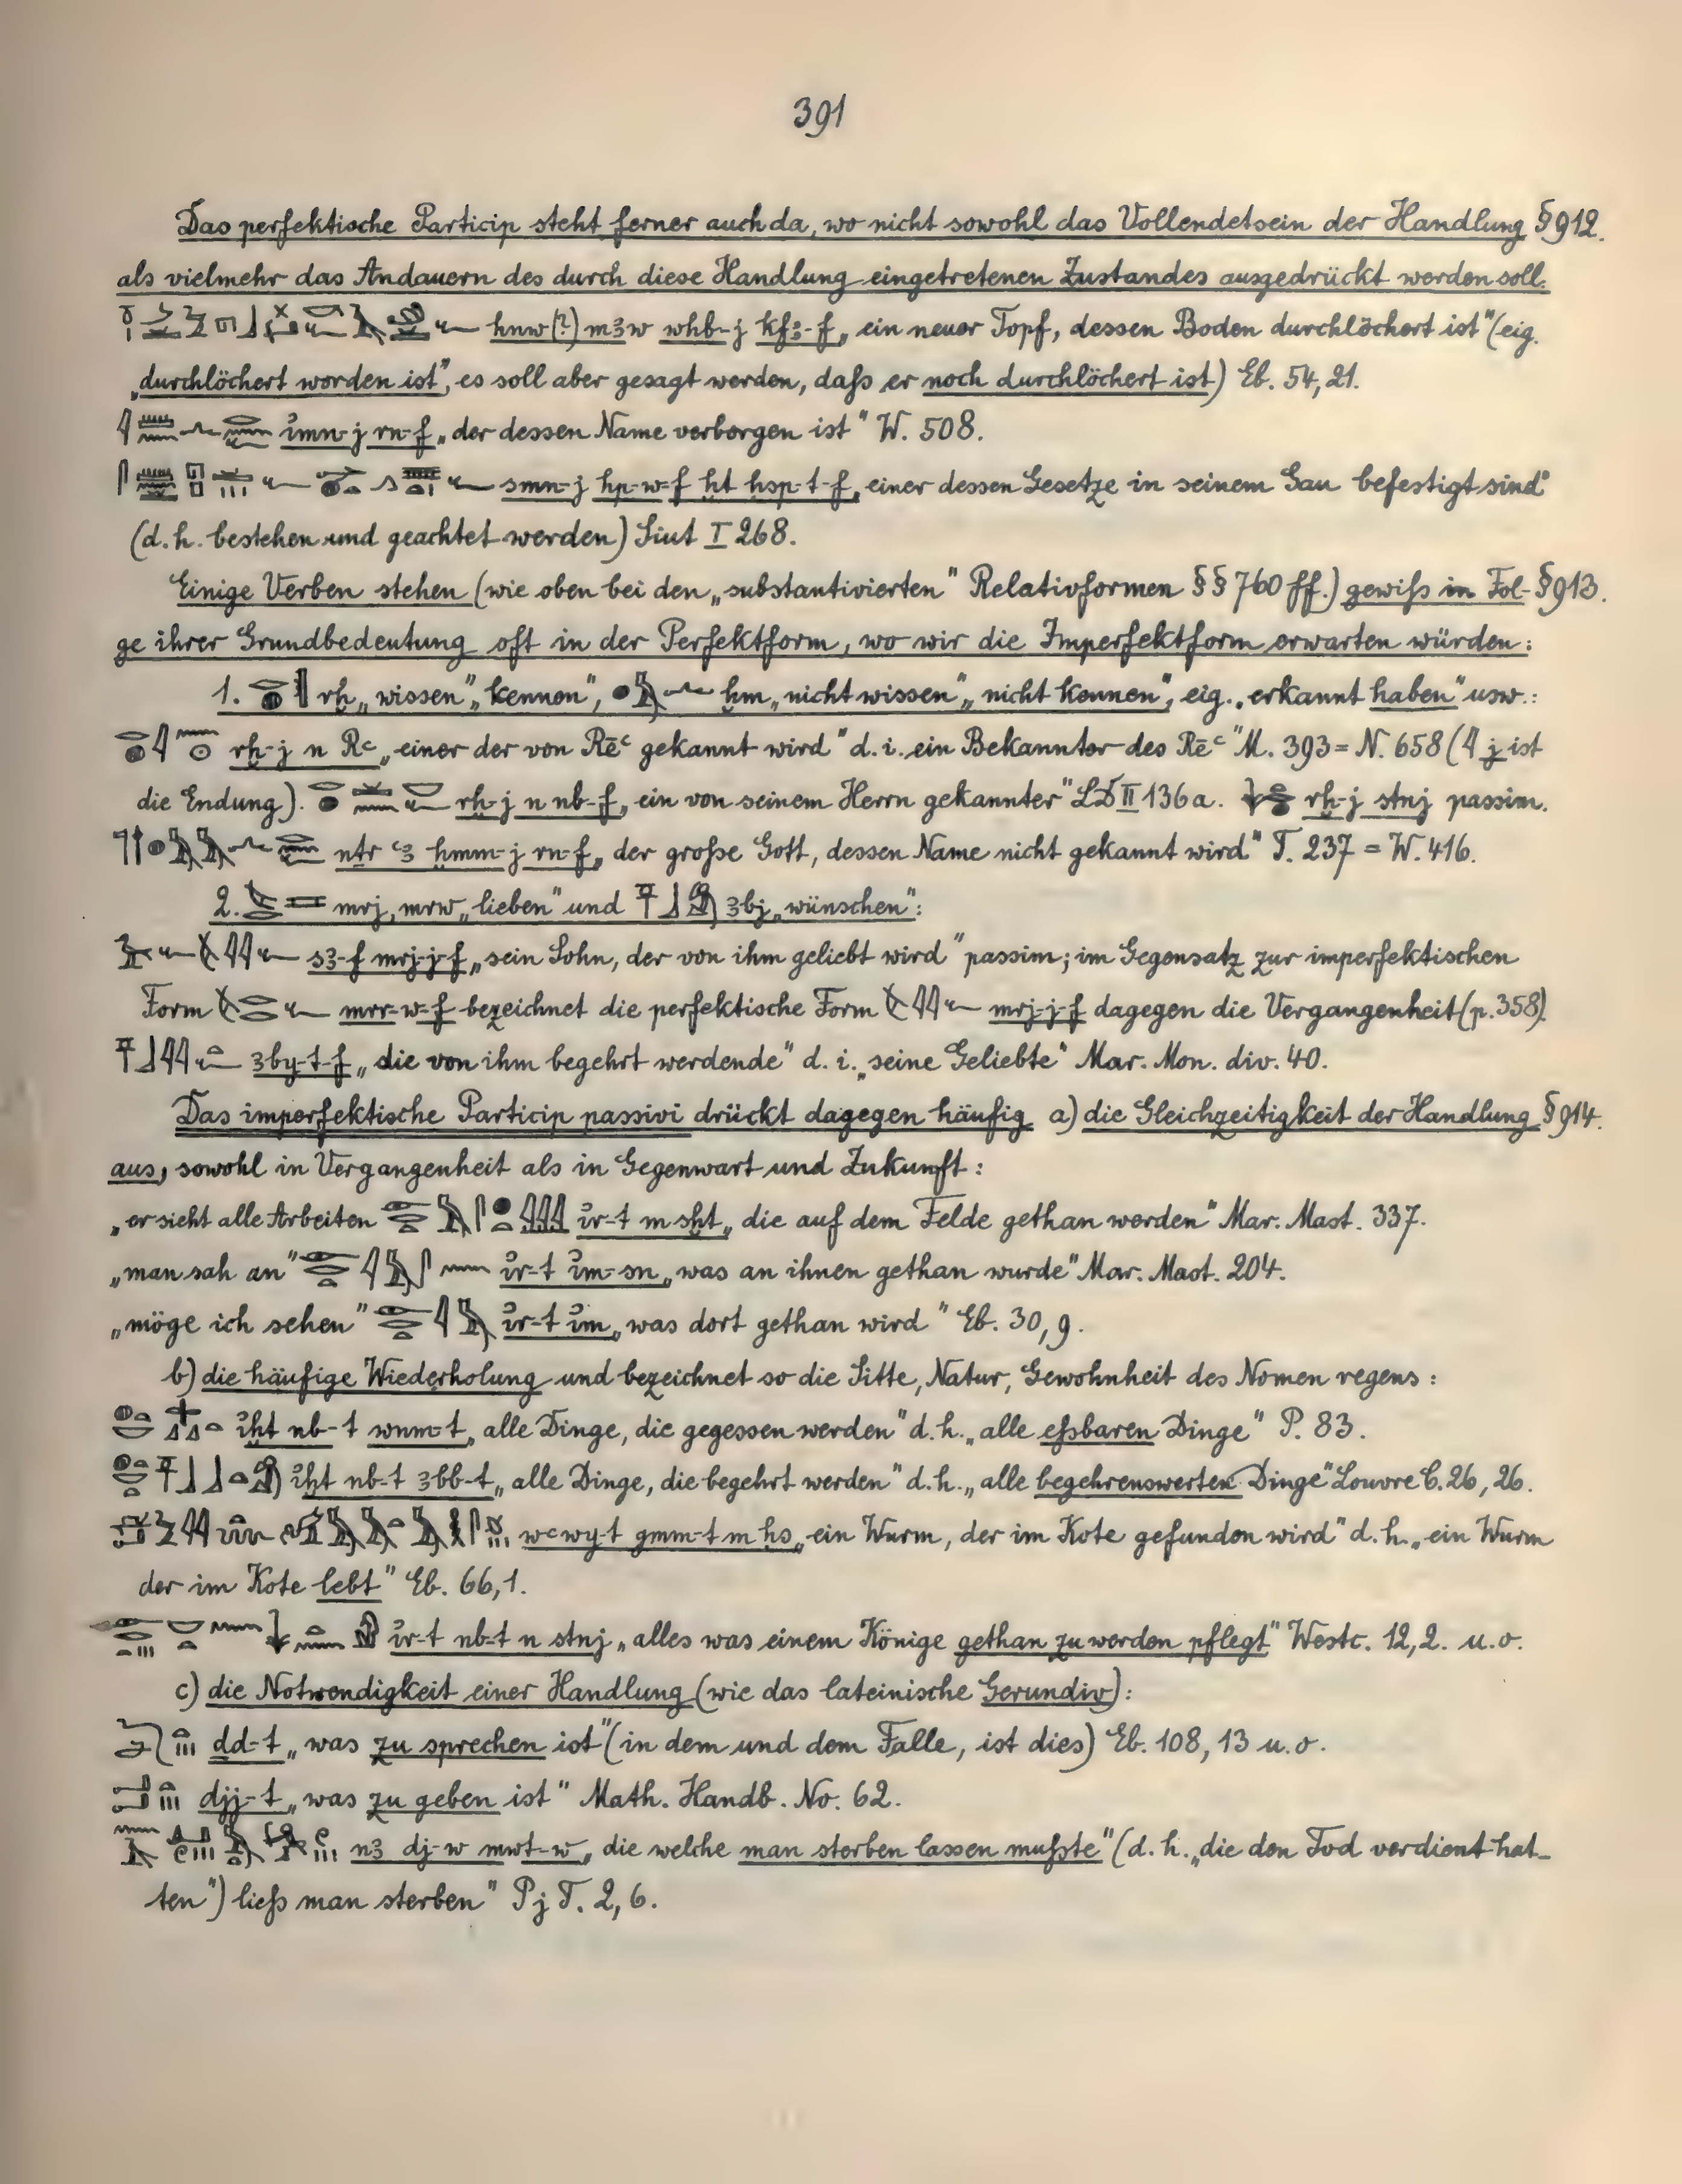 391
Das perfektische Particip steht ferner auch da, wo nicht sowohl das Vollendetsein der Handlung § 912.
als vielmehr das Andauern des durch diese Handlung eingetretenen Zustandes ausgedrückt werden soll.
hnw (?) mꜣw whb-j kfꜣ-f „ein neuer Topf, dessen Boden durchlöchert ist" (eig.
„durchlöchert worden ist", es soll aber gesagt werden, daſs er noch durchlöchert ist) Eb. 54, 21.
i͗mn-j rn-f „der dessen Name verborgen ist" W. 508.
smn-j hp-w-f ḫt ḥsp-t-f „einer dessen Gesetze in seinem Gau befestigt sind"
(d. h. bestehen und geachtet werden) Siut I 268.
Einige Verben stehen (wie oben bei den „substantivierten" Relativformen §§ 760 ff.) gewiſs in Fol- § 913.
ge ihrer Grundbedeutung oft in der Perfektform, wo wir die Imperfektform erwarten würden:
1. rḫ „wissen", „kennen", ḫm „nicht wissen", „nicht kennen", eig. „erkannt haben" usw.:
rḫ-j n Rꜥ „einer der von Rēꜥ gekannt wird" d. i. ein Bekannter des Rēꜥ M. 393 = N. 658 (j ist
die Endung). rḫ-j n nb-f „ein von seinem Herrn gekannter" LD II 136 a. rḫ-j stnj passim.
nṯr ꜥꜣ ḫmm-j rn-f „der groſse Gott, dessen Name nicht gekannt wird" T. 237 = W. 416.
2. mrj, mrw „lieben" und ꜣbj „wünschen":
sꜣ-f mrj-j-f „sein Sohn, der von ihm geliebt wird" passim; im Gegensatz zur imperfektischen
Form mrr-w-f bezeichnet die perfektische Form mrj-j-f dagegen die Vergangenheit (p. 358).
ꜣby-t-f „die von ihm begehrt werdende" d. i. „seine Geliebte" Mar. Mon. div. 40.
Das imperfektische Particip passivi drückt dagegen häufig a) die Gleichzeitigkeit der Handlung § 914.
aus, sowohl in Vergangenheit als in Gegenwart und Zukunft:
„er sieht alle Arbeiten i͗r-t m sḫt „die auf dem Felde gethan werden" Mar. Mast. 337.
„man sah an" i͗r-t i͗m-sn „was an ihnen gethan wurde" Mar. Mast. 204.
„möge ich sehen" i͗r-t i͗m „was dort gethan wird" Eb. 30, 9.
b) die häufige Wiederholung und bezeichnet so die Sitte, Natur, Gewohnheit des Nomen regens:
i͗ḫt nb-t wnm-t „alle Dinge, die gegessen werden" d. h. „alle eſsbaren Dinge" P. 83.
i͗ḫt nb-t ꜣbb-t „alle Dinge, die begehrt werden" d. h. „alle begehrenswerten Dinge" Louvre C. 26, 26.
wꜥwy-t gmm-t m ḥs „ein Wurm, der im Kote gefunden wird" d. h. „ein Wurm
der im Kote lebt" Eb. 66, 1.
i͗r-t nb-t n stnj „alles was einem Könige gethan zu werden pflegt" Westc. 12, 2. u. o.
c) die Notwendigkeit einer Handlung (wie das lateinische Gerundiv):
dd-t „was zu sprechen ist" (in dem und dem Falle, ist dies) Eb. 108, 13 u. o.
djj-t „was zu geben ist" Math. Handb. No. 62.
nꜣ dj-w mwt-w „die welche man sterben lassen muſste" (d. h. „die den Tod verdient hat-
ten") lieſs man sterben" Pj T. 2, 6.